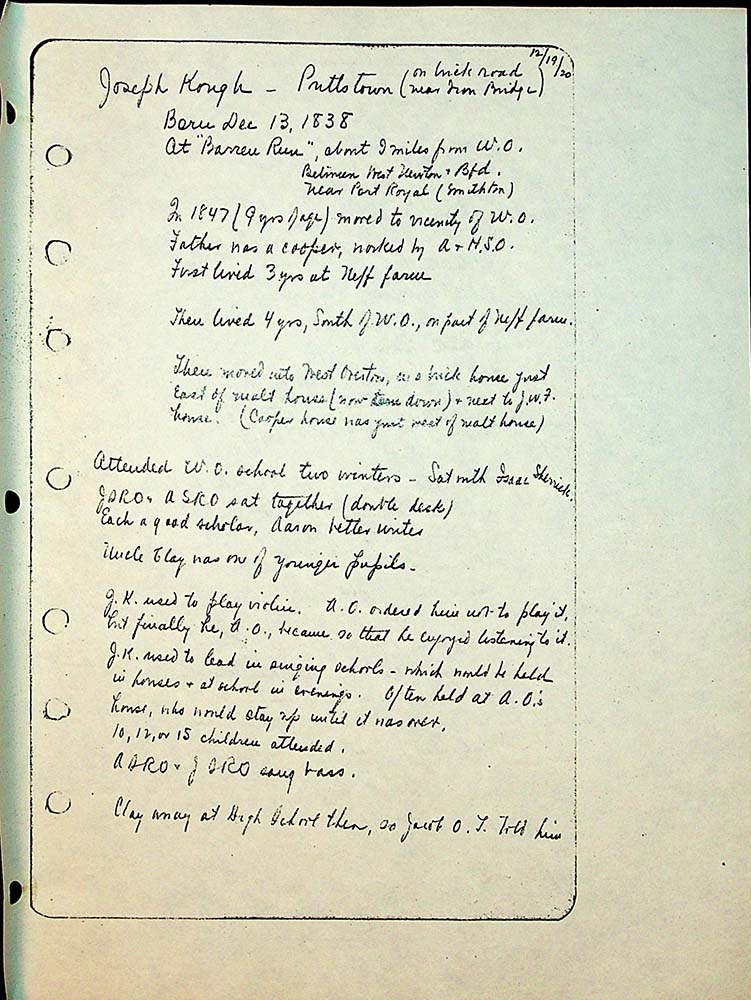 12/19/20
Joseph Kough – Pruttstown (on brick road near Iron Bridge)
Born Dec 13, 1838
At "Barren Run", about 9 miles from W.O.
Between West Newton & Bfd.
near Port Royal (Smithton)
In 1847 (9 yrs of age) moved to vicinity of W.O.
Father was a cooper, worked by A & H.S.O.
First lived 3 yrs at Neff farm
Then lived 4 yrs, South of W.O., on part of Neff farm.
Then moved into West Overton, in a brick house just
East of malt house (now torn down) & next to J.W.F.
house. (Cooper house was just west of malt house)
Attended W.O. school two winters – Sat with Isaac Sherrick.
JSRO & ASRO sat together (double desk)
Each a good scholar, Aaron better writer
Uncle Clay was one of younger pupils –
J.K. used to play violin. A.O. ordered him not to play it,
but finally he, A.O., became so that he enjoyed listening to it.
J.K. used to lead in singing schools – which would be held
in houses & at school in evenings. Often held at A.O.'s
house, who would stay up until it was over.
10, 12, or 15 children attended.
ASRO & JSRO sang bass.
Clay away at High School then, so Jacob O. T. told him